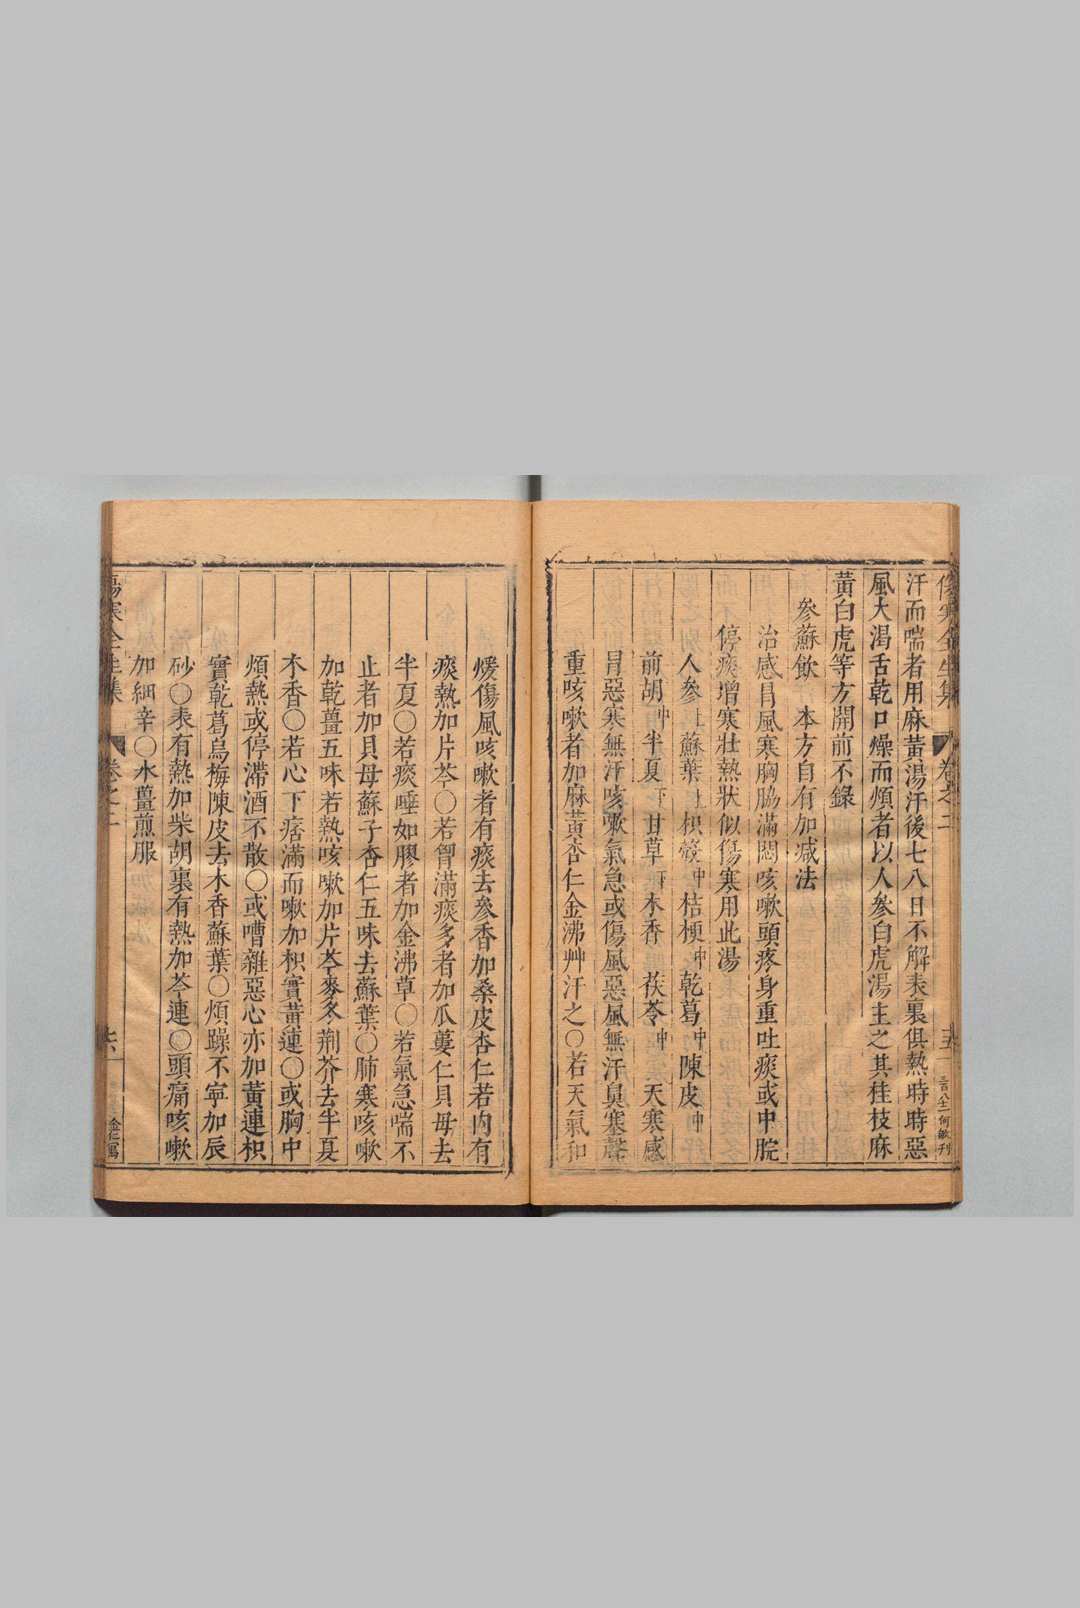 傷寒全生集 卷之二 五 何敏刊
汗而喘者用麻黃湯汗後七八日不解表裏俱熱時時惡
風大渴舌乾口燥而煩者以人參白虎湯主之其桂枝麻
黃白虎等方開前不錄
參蘇飲 本方自有加减法
治感冒風寒胸脇滿悶咳嗽頭疼身重吐痰或中脘
停痰增寒壯熱狀似傷寒用此湯
人參上 蘇葉上 枳殼中 桔梗中 乾葛中 陳皮中
前胡中 半夏下 甘草下 木香 茯苓中 天寒感
冒惡寒無汗咳嗽氣急或傷風惡風無汗鼻塞聲
重咳嗽者加麻黃杏仁金沸艸汗之○若天氣和
煖傷風咳嗽者有痰去參香加桑皮杏仁若內有
痰熱加片芩○若胷滿痰多者加瓜蔞仁貝母去
半夏○若痰唾如膠者加金沸草○若氣急喘不
止者加貝母蘇子杏仁五味去蘇葉○肺寒咳嗽
加乾薑五味若熱咳嗽加片芩麥冬荆芥去半夏
木香○若心下痞滿而嗽加枳實黃連○或胸中
煩熱或停滯酒不散○或嘈雜惡心亦加黃連枳
實乾葛烏梅陳皮去木香蘇葉○煩躁不寧加辰
砂○表有熱加柴胡裏有熱加芩連○頭痛咳嗽
加細辛○水薑煎服
傷寒全生集 卷之二 六